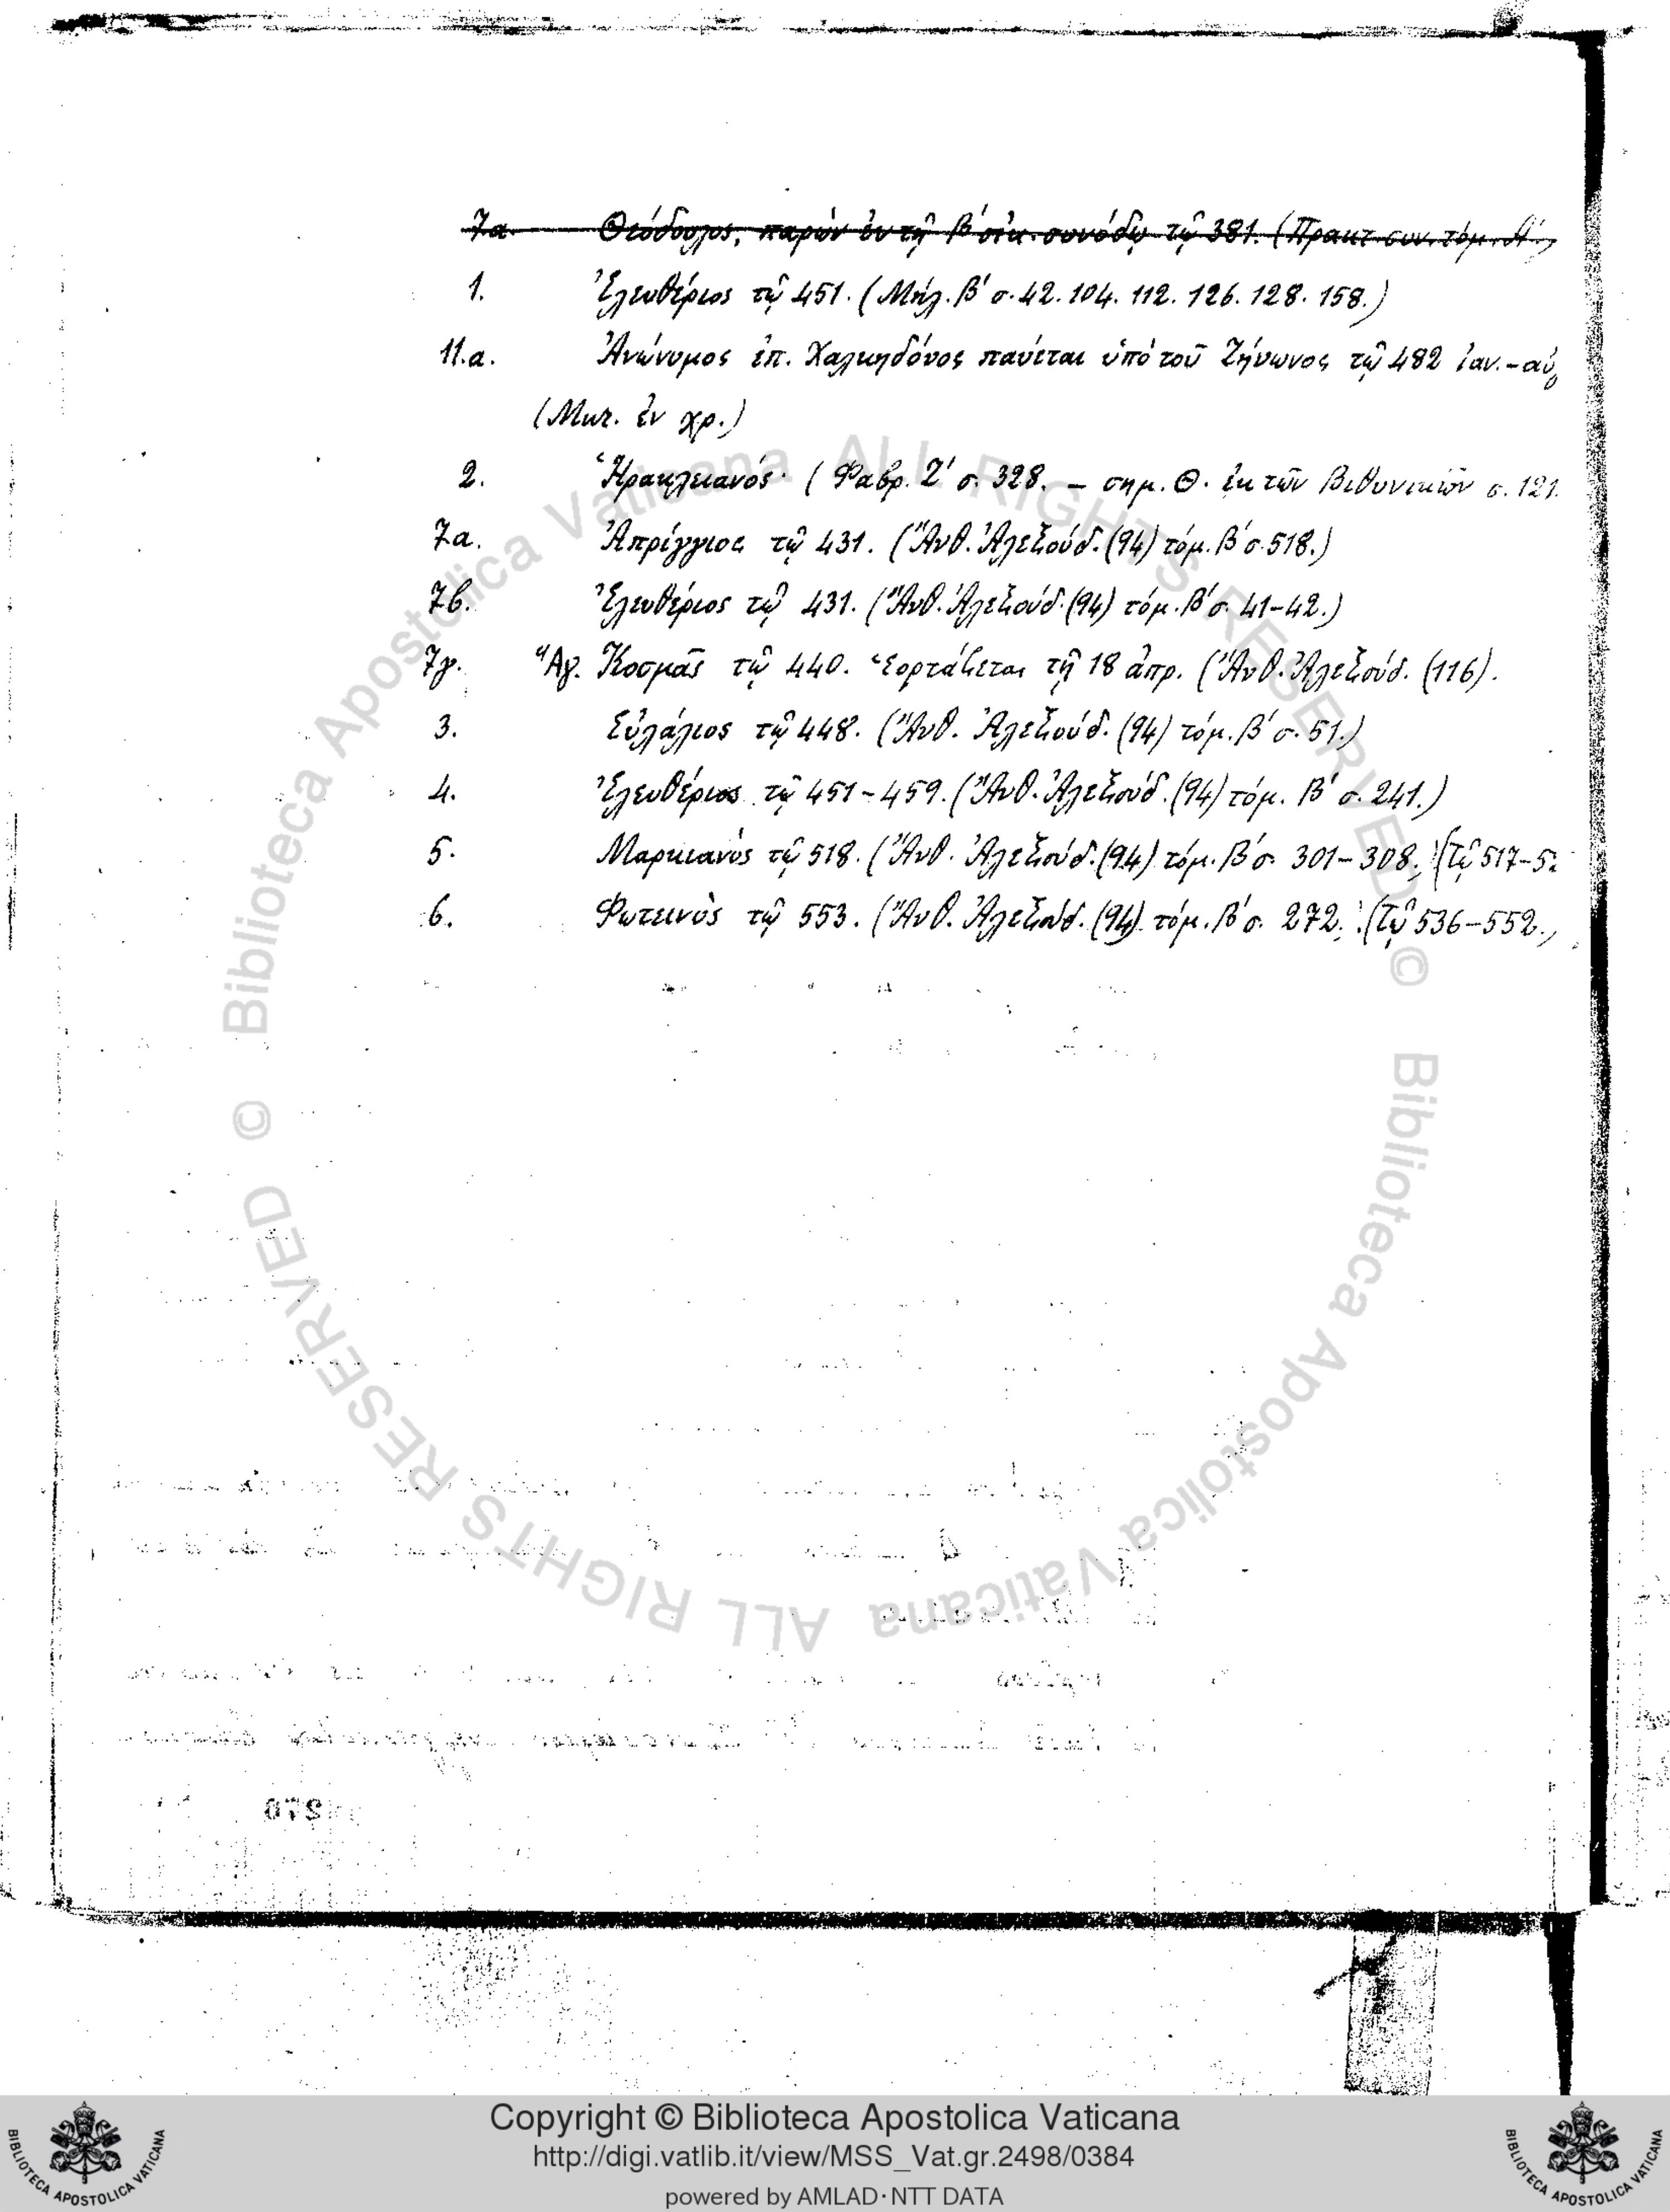 7α. Θεόδουλος, παρὼν ἐν τῇ Β΄ οἰκ. συνόδῳ τῷ 381. (Πρακτ. συν. τόμ. Α΄.
1. Ἐλευθέριος τῷ 451. (Μήλ. Β΄ σ. 42. 104. 112. 126. 128. 158.)
11.α. Ἀνώνυμος ἐπ. Χαλκηδόνος παύεται ὑπὸ τοῦ Ζήνωνος τῷ 482 ἰαν.-αὐ
(Μικ. ἐν χρ.)
2. Ἡρακλειανός. (Φαβρ. Ζ΄ σ. 328. – σημ. Θ. ἐκ τῶν Βιθυνικῶν σ. 121.
7α. Ἀπρίγγιος τῷ 431. (Ἄνθ. Ἀλεξούδ. (94) τόμ. Β΄ σ. 518.)
7β. Ἐλευθέριος τῷ 431. (Ἄνθ. Ἀλεξούδ. (94) τόμ. Β΄ σ. 41-42.)
7γ. Ἅγ. Κοσμᾶς τῷ 440. Ἑορτάζεται τῇ 18 ἀπρ. (Ἄνθ. Ἀλεξούδ. (116).
3. Εὐλάλιος τῷ 448. (Ἄνθ. Ἀλεξούδ. (94) τόμ. Β΄ σ. 51.)
4. Ἐλευθέριος τῷ 451-459. (Ἄνθ. Ἀλεξούδ. (94) τόμ. Β΄ σ. 241.)
5. Μαρκιανὸς τῷ 518. (Ἄνθ. Ἀλεξούδ. (94) τόμ. Β΄ σ. 301-308. (Τῷ 517-5
6. Φωτεινὸς τῷ 553. (Ἄνθ. Ἀλεξούδ. (94) τόμ. Β΄ σ. 272. (Τῷ 536-552.
© Biblioteca Apostolica Vaticana ALL RIGHTS RESERVED
© Biblioteca Apostolica Vaticana ALL RIGHTS RESERVED
BIBLIOTECA APOSTOLICA VATICANA
Copyright © Biblioteca Apostolica Vaticana
http://digi.vatlib.it/view/MSS_Vat.gr.2498/0384
powered by AMLAD·NTT DATA
BIBLIOTECA APOSTOLICA VATICANA